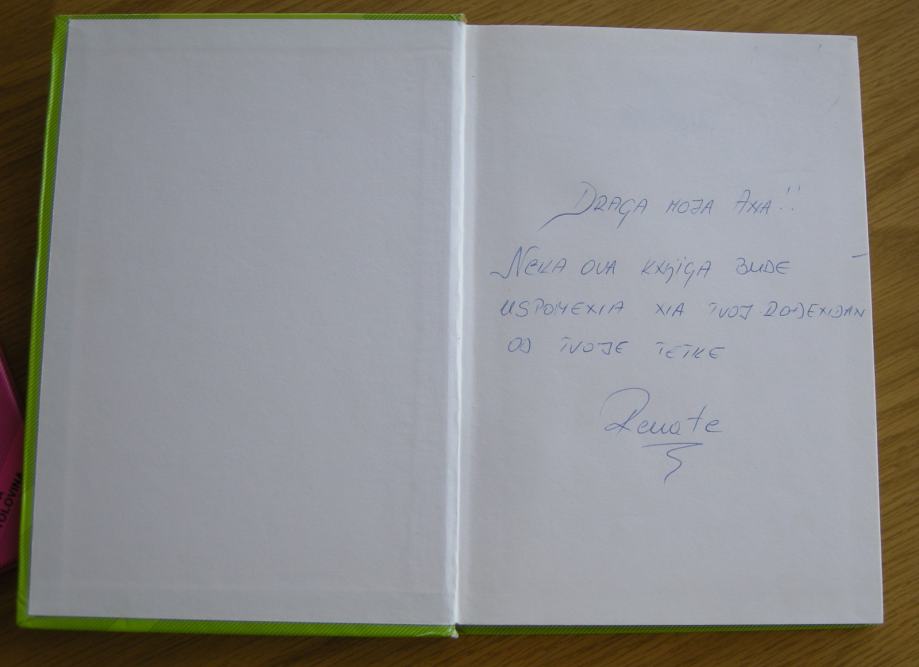 DRAGA MOJA ANA!!
NEKA OVA KNJIGA BUDE
USPOMENA NA TVOJ ROĐENDAN
OD TVOJE TETKE
Renate
POLOVINA